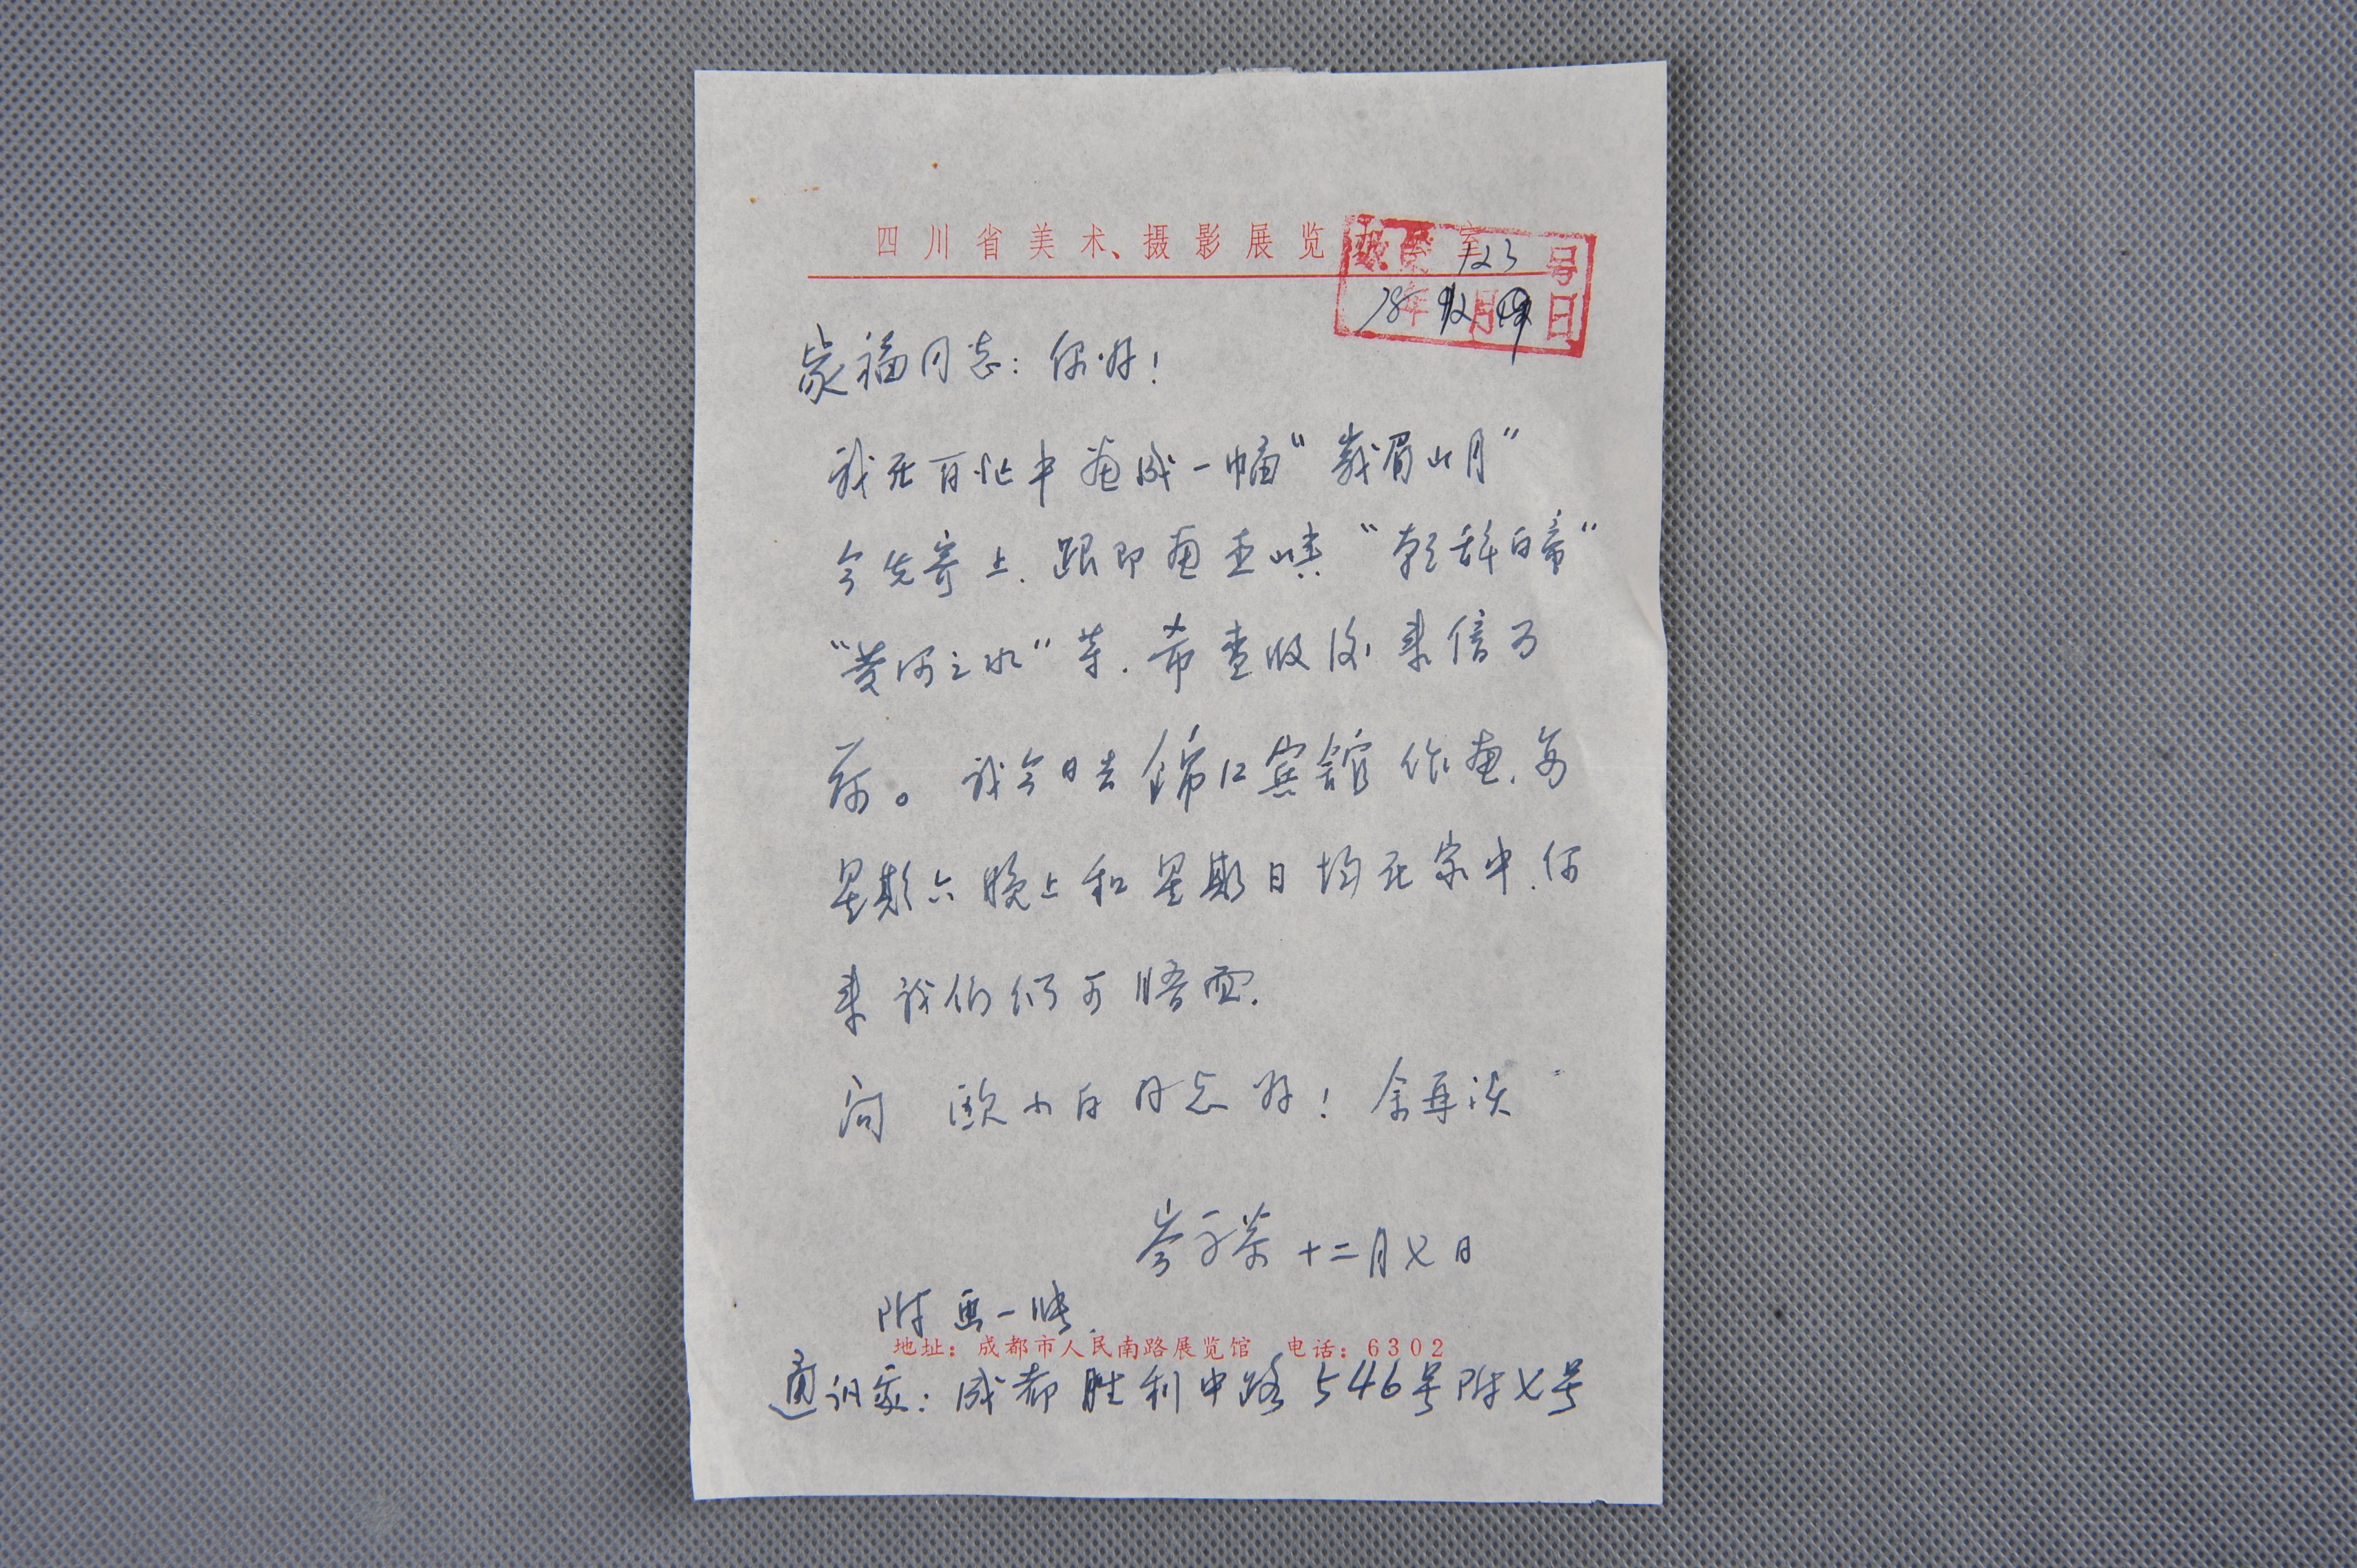 四川省美术、摄影展览办公室
收文 123 号
78年12月19日
家福同志：你好！
我在百忙中画成一幅“峨眉山月”
今先寄上．跟即画巫峡“朝辞白帝”
“黄河之水”等．希查收后来信为
荷。 我今日去锦江宾馆作画．每
星期六晚上和星期日均在家中．你
来我们仍可晤面．
问 欧小白同志好！ 余再谈
岑子荣 十二月七日
附画一帧．
地址：成都市人民南路展览馆 电话：6302
通讯处：成都胜利中路546号附七号